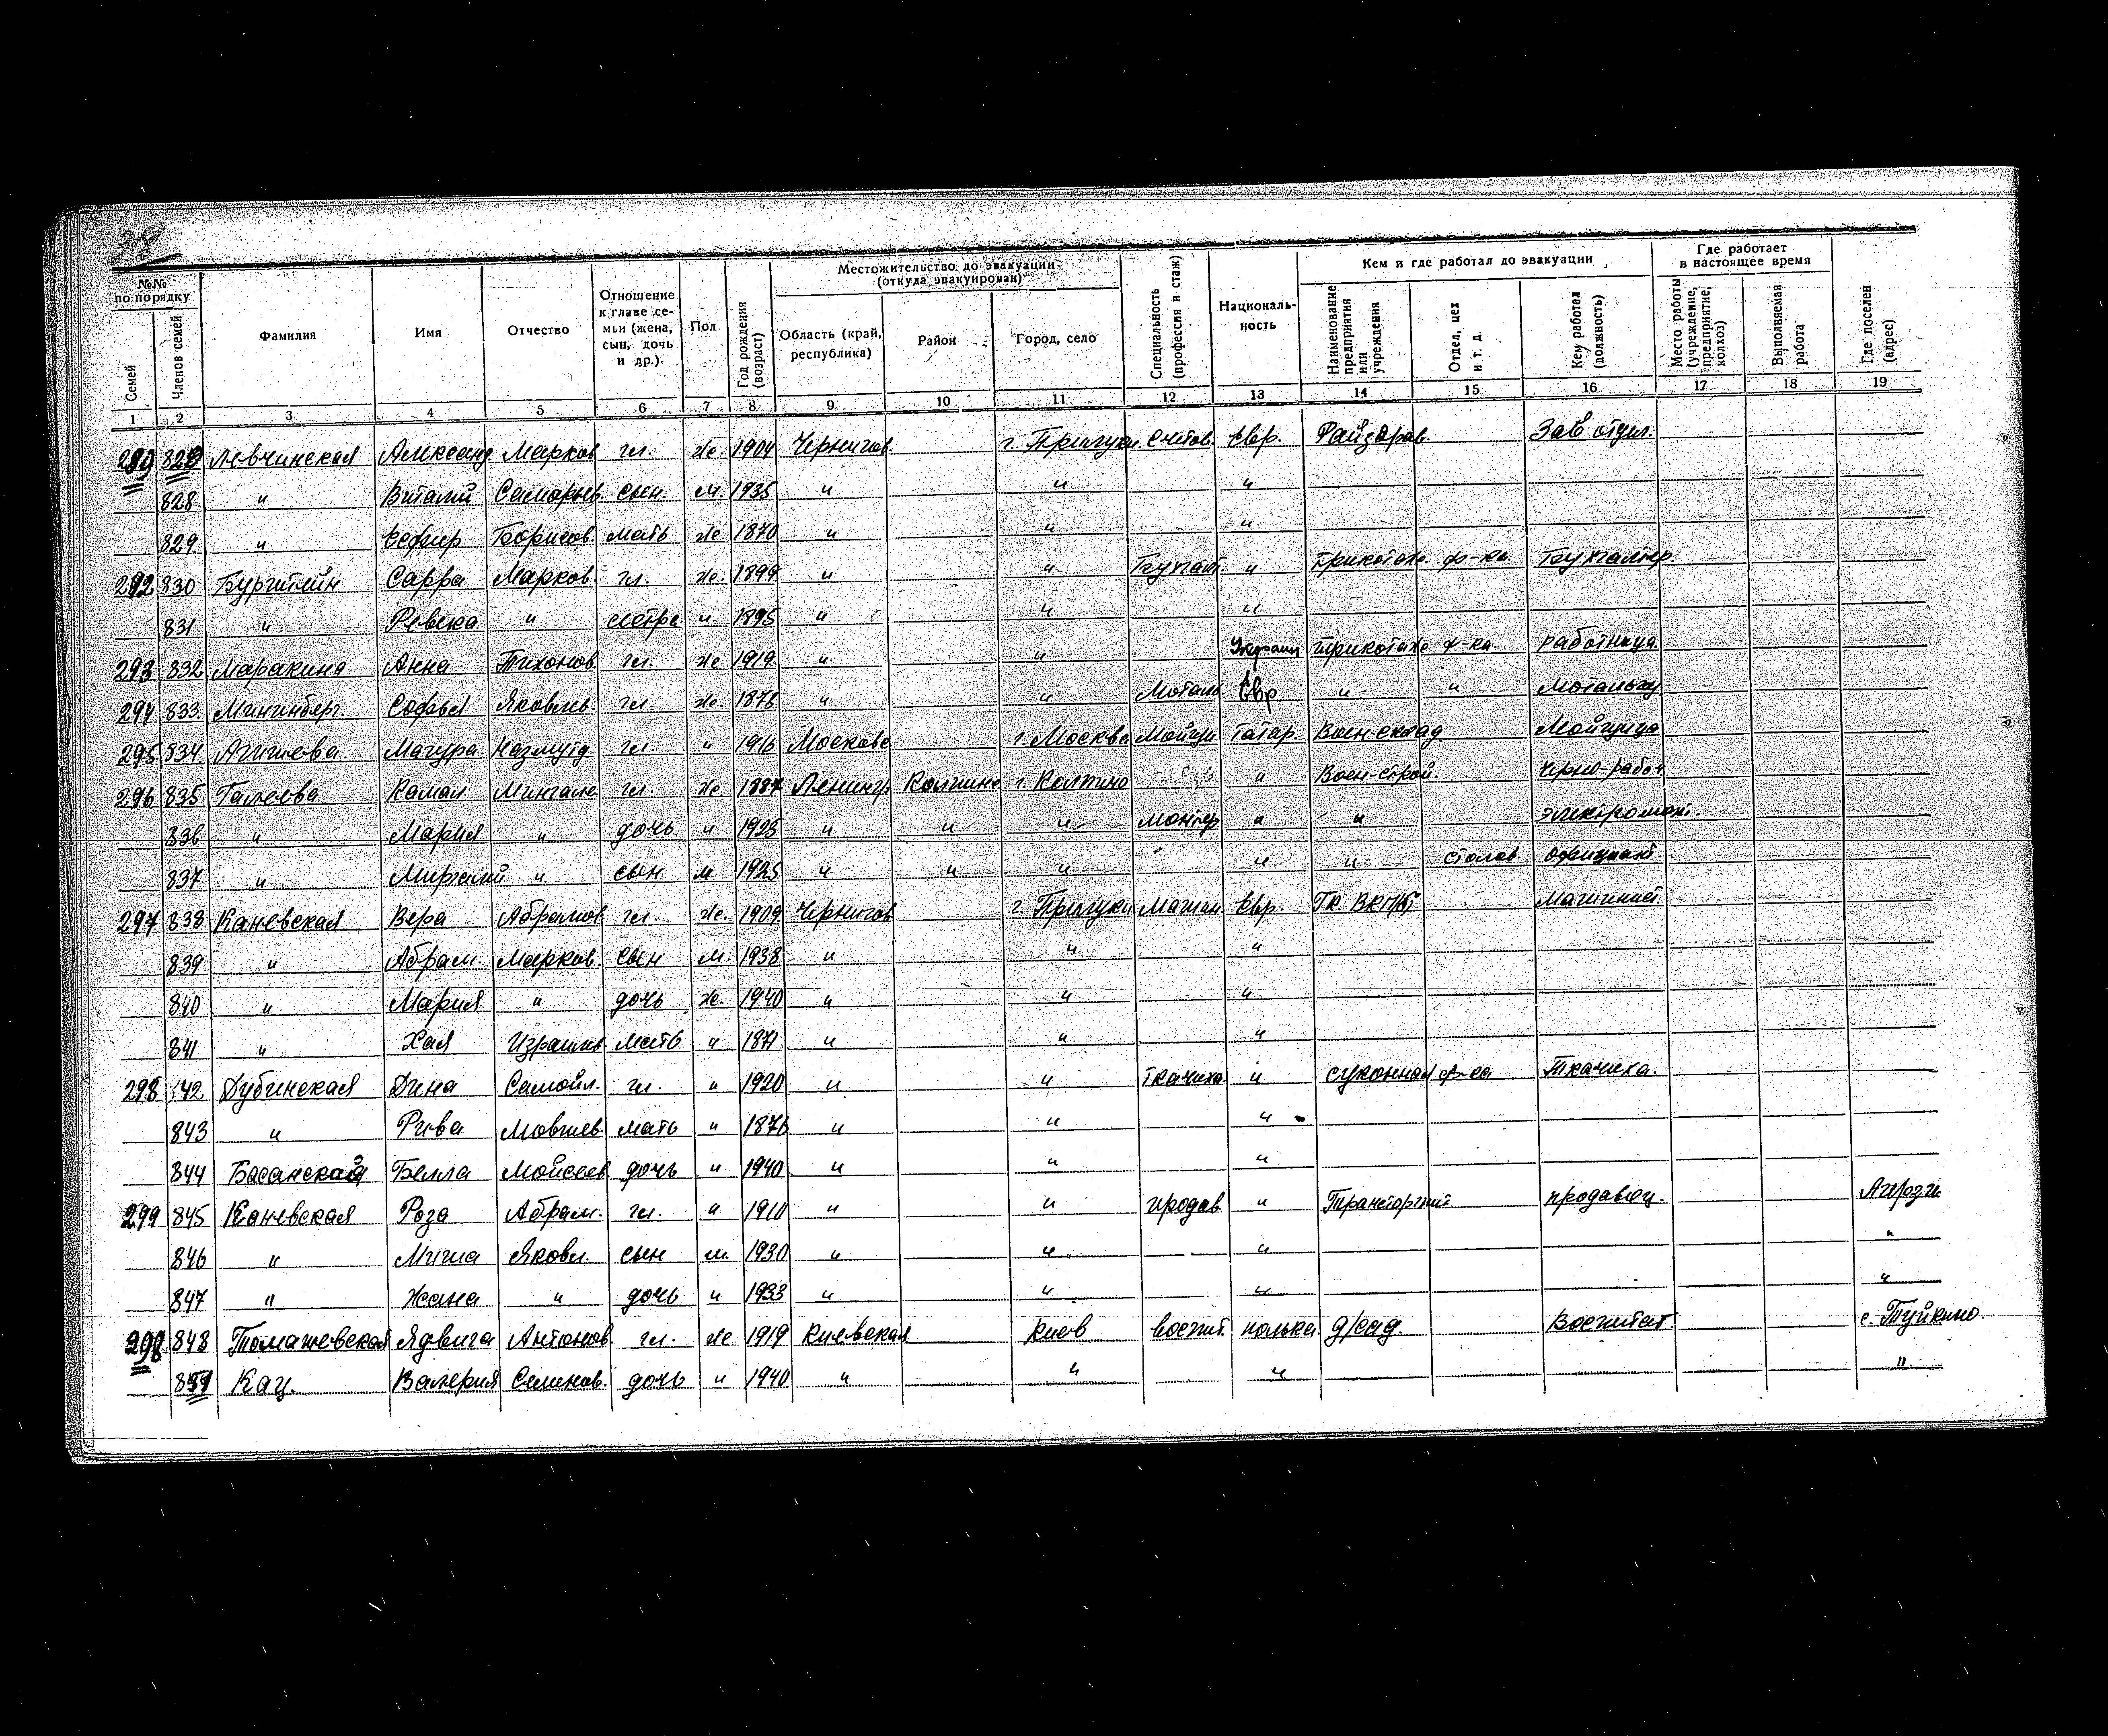 №№ по порядку
Семей
Членов семей
Фамилия
Имя
Отчество
Отношение к главе семьи (жена, сын, дочь и др.)
Пол
Год рождения (возраст)
Местожительство до эвакуации (откуда эвакуирован)
Область (край, республика)
Район
Город, село
Специальность (профессия и стаж)
Националь-ность
Кем и где работал до эвакуации
Наименование предприятия или учреждения
Отдел, цех и т. д.
Кем работал (должность)
Где работает в настоящее время
Место работы (учреждение, предприятие, колхоз)
Выполняемая работа
Где поселен (адрес)
1 2 3 4 5 6 7 8 9 10 11 12 13 14 15 16 17 18 19
Левчинская Александ Марков гл. же. 1904 Чернигов. г. Прилуки Счетов. Евр. Райздрав. Зав отдел.
828 " Виталий Самарьев сын м 1935 " " "
829 " Есфир Борисов. мать же 1870 " " "
292 830 Бурштейн Сарра Марков гл. же. 1899 " " Бухгалт. " Трикотаж. ф-ка Бухгалтер.
831 " Ревека " сестра " 1895 " " "
293 832 Маракина Анна Тихонов. гл. же 1919 " " Украин Трикотаж ф-ка работница
294 833 Софья Яковлев. гл. же. 1878 " " Мотальщ Евр " "
295 834 Агишева гл. " 1916 Москов г. Москва Мойщи Татар. Воен-склад Мойщица
296 835 Галеева Камал гл. же 1887 Ленингр Колпино г. Колпино " Воен-строй. Черно-работ
836 " Мария " дочь " 1925 " " " Монтер " " электромонт.
837 " " сын м 1925 " " " " " столов официант
297 838 Каневская Вера Абрамов гл. же. 1909 Чернигов г. Прилуки Машин Евр. Машинист
839 " Абрам. Марков. сын м. 1938 " " "
840 " Мария " дочь же. 1940 " " "
841 " Хая Израилев мать " 1871 " " "
298 842 Дубинская Дина Самойл. гл. " 1920 " " ткачиха " суконная ф-ка Ткачиха.
843 " Рива Мовшев. мать " 1876 " " "
844 Басанская Белла Моисеев. дочь " 1940 " " "
299 845 Каневская Роза Абрам. гл. " 1910 " " продав " Трансторгпит продавец. Агрыз
846 " Миша Яковл. сын м. 1930 " " " "
847 " Жана " дочь " 1933 " " " "
298 848 Томашевская Ядвига Антонов. гл. же 1919 Киевская Киев воспит. полька д/сад. Воспитат. с. Туйкино.
Кац. Валерия Семенов. дочь " 1940 " " " "